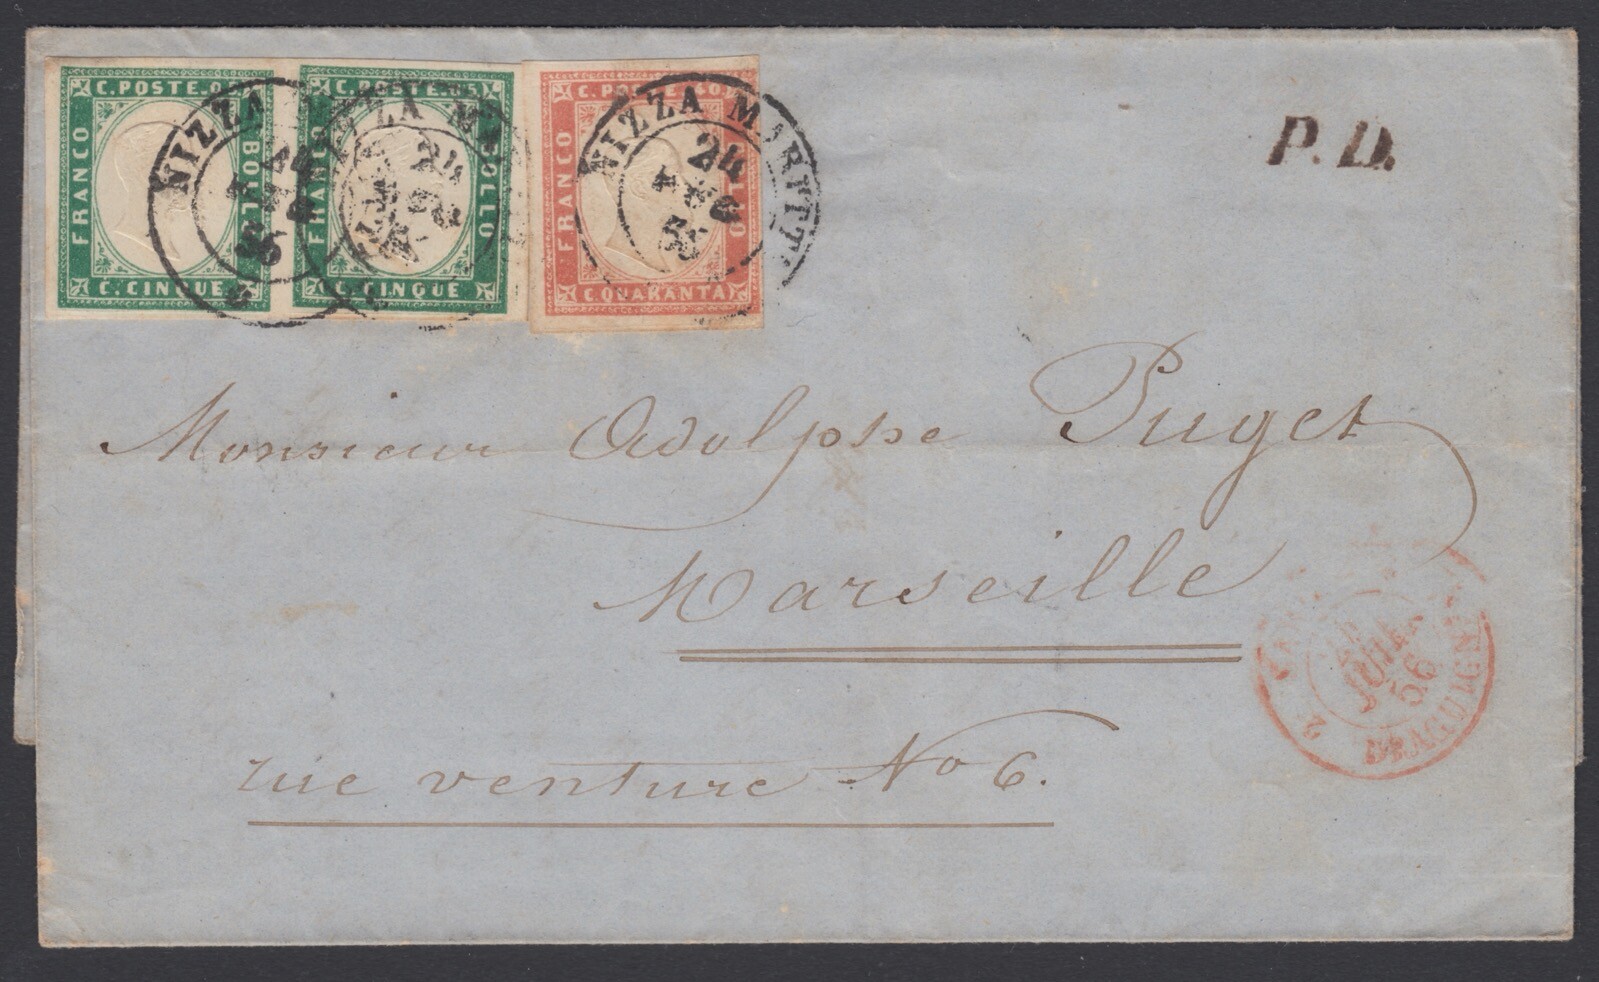 C. POSTE. 05
FRANCO
BOLLO
C. CINQUE
C. POSTE. 5
FRANCO
BOLLO
C. CINQUE
C. POSTE 40
FRANCO
BOLLO
C. QUARANTA
NIZZA
NIZZA MARITT.
24
P. D.
Monsieur Adolphe Puget
Marseille
rue venture No 6.
2 DRAGUIGNAN
JUIN
56